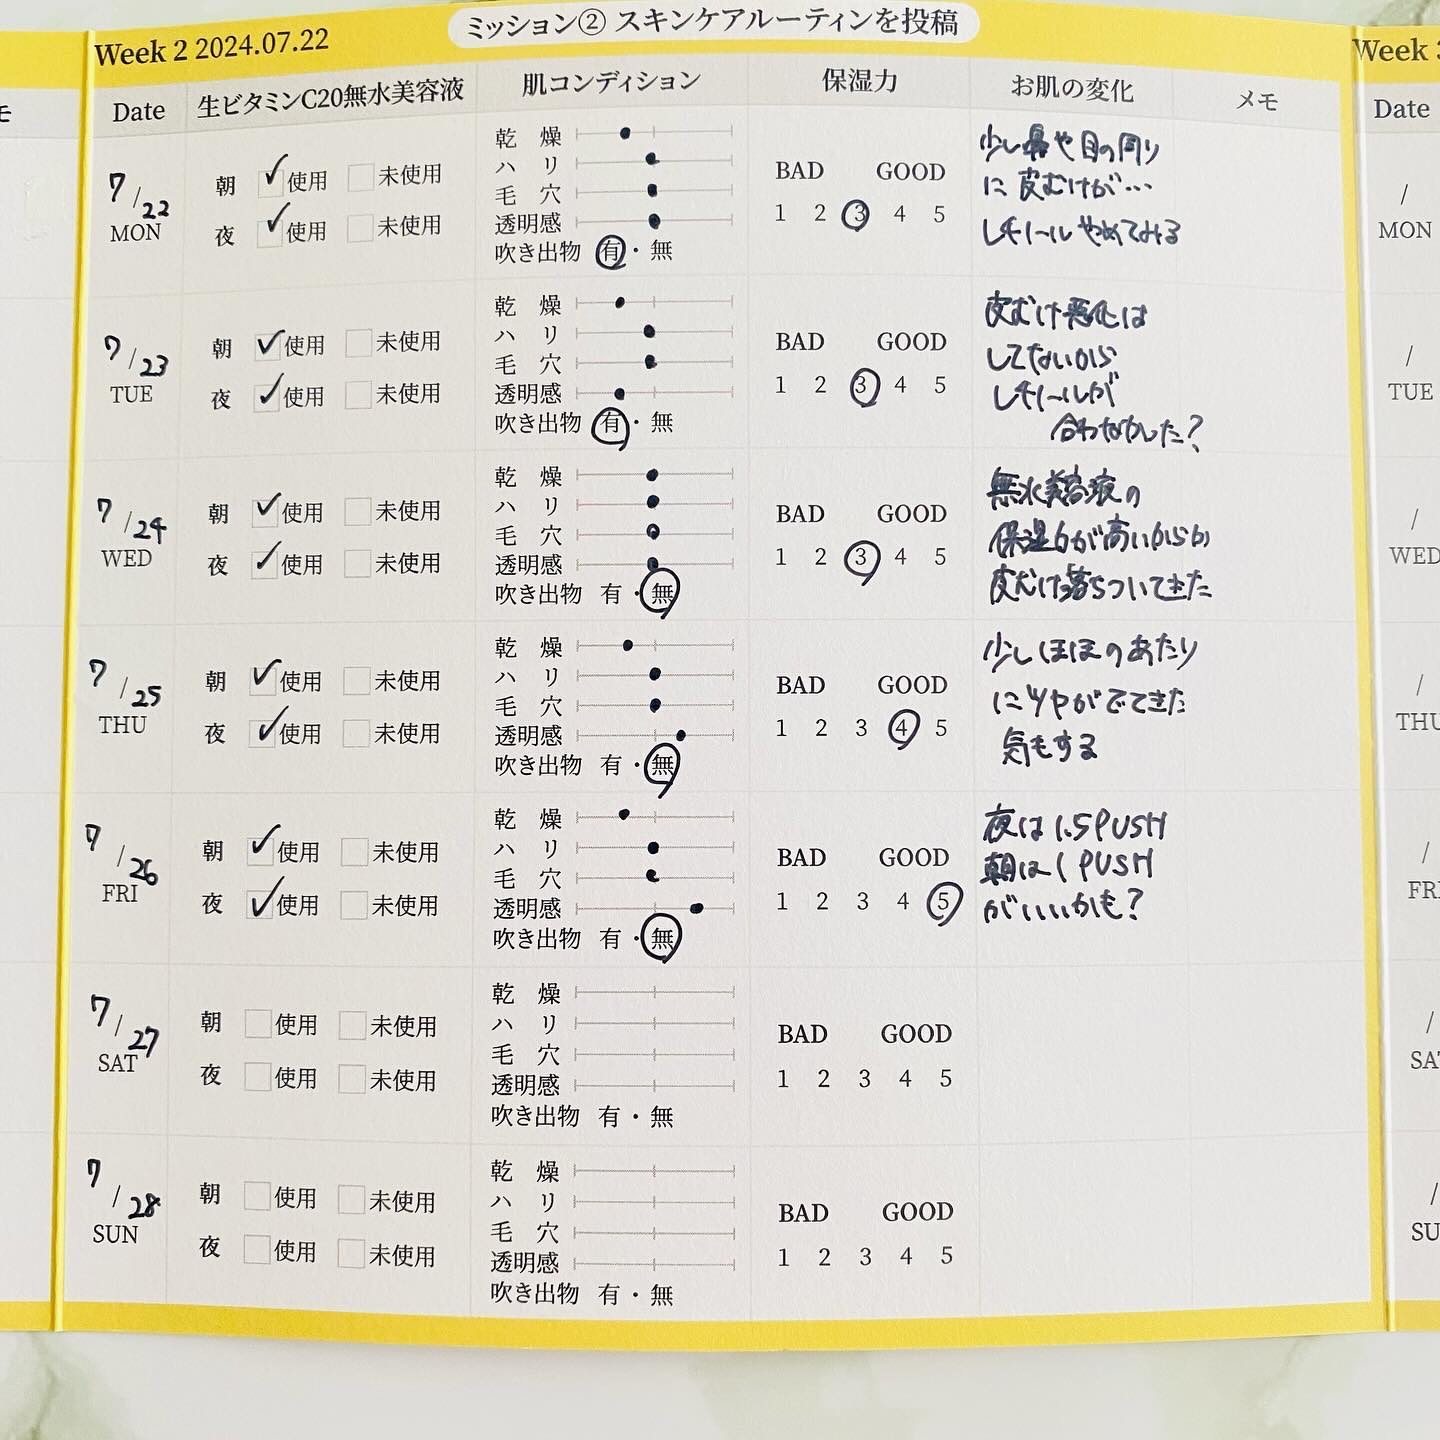 ミッション② スキンケアルーティンを投稿
Week 2 2024.07.22
Date 生ビタミンC20無水美容液 肌コンディション 保湿力 お肌の変化 メモ
7/22
MON
朝 使用 未使用
夜 使用 未使用
乾燥
ハリ
毛穴
透明感
吹き出物 有・無
BAD GOOD
1 2 3 4 5
少し鼻や目の周り
に皮むけが…
レチノールやめてみる
7/23
TUE
朝 使用 未使用
夜 使用 未使用
乾燥
ハリ
毛穴
透明感
吹き出物 有・無
BAD GOOD
1 2 3 4 5
皮むけ悪化は
してないから
レチノールが
合わなかった?
7/24
WED
朝 使用 未使用
夜 使用 未使用
乾燥
ハリ
毛穴
透明感
吹き出物 有・無
BAD GOOD
1 2 3 4 5
無水美容液の
保湿力が高いからか
皮むけ落ちついてきた
7/25
THU
朝 使用 未使用
夜 使用 未使用
乾燥
ハリ
毛穴
透明感
吹き出物 有・無
BAD GOOD
1 2 3 4 5
少しほほのあたり
にツヤがでてきた
気もする
7/26
FRI
朝 使用 未使用
夜 使用 未使用
乾燥
ハリ
毛穴
透明感
吹き出物 有・無
BAD GOOD
1 2 3 4 5
夜は1.5PUSH
朝は1PUSH
がいいかも?
7/27
SAT
朝 使用 未使用
夜 使用 未使用
乾燥
ハリ
毛穴
透明感
吹き出物 有・無
BAD GOOD
1 2 3 4 5
7/28
SUN
朝 使用 未使用
夜 使用 未使用
乾燥
ハリ
毛穴
透明感
吹き出物 有・無
BAD GOOD
1 2 3 4 5
Week
Date
/
MON
/
TUE
/
WED
/
THU
/
FRI
/
SAT
/
SU